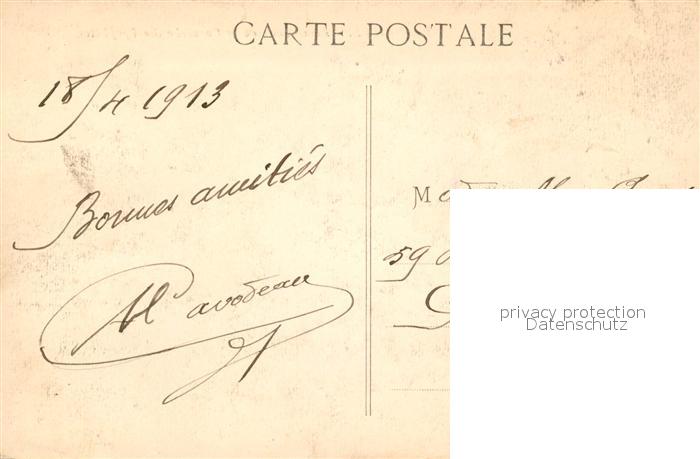 CARTE POSTALE
18/4 1913
Bonnes amitiés
M
59
privacy protection
Datenschutz